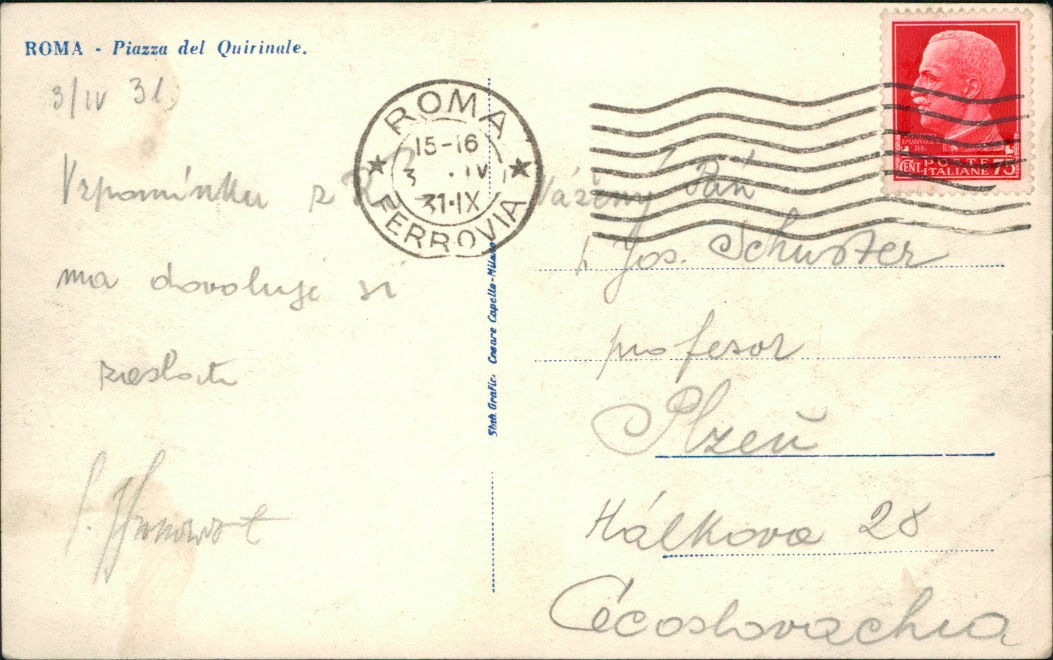 ROMA - Piazza del Quirinale.
3/IV 31
Vzpomínku z
ma dovoluji si
zaslati
ROMA
15-16
3 . IV
31·IX
FERROVIA
Stab. Grafic. Cesare Capello-Milano
CENT. POSTE 75
ITALIANE
Vážený Pán
Jos. Schuster
profesor
Plzeň
Hálkova 28
Cécoslovachia